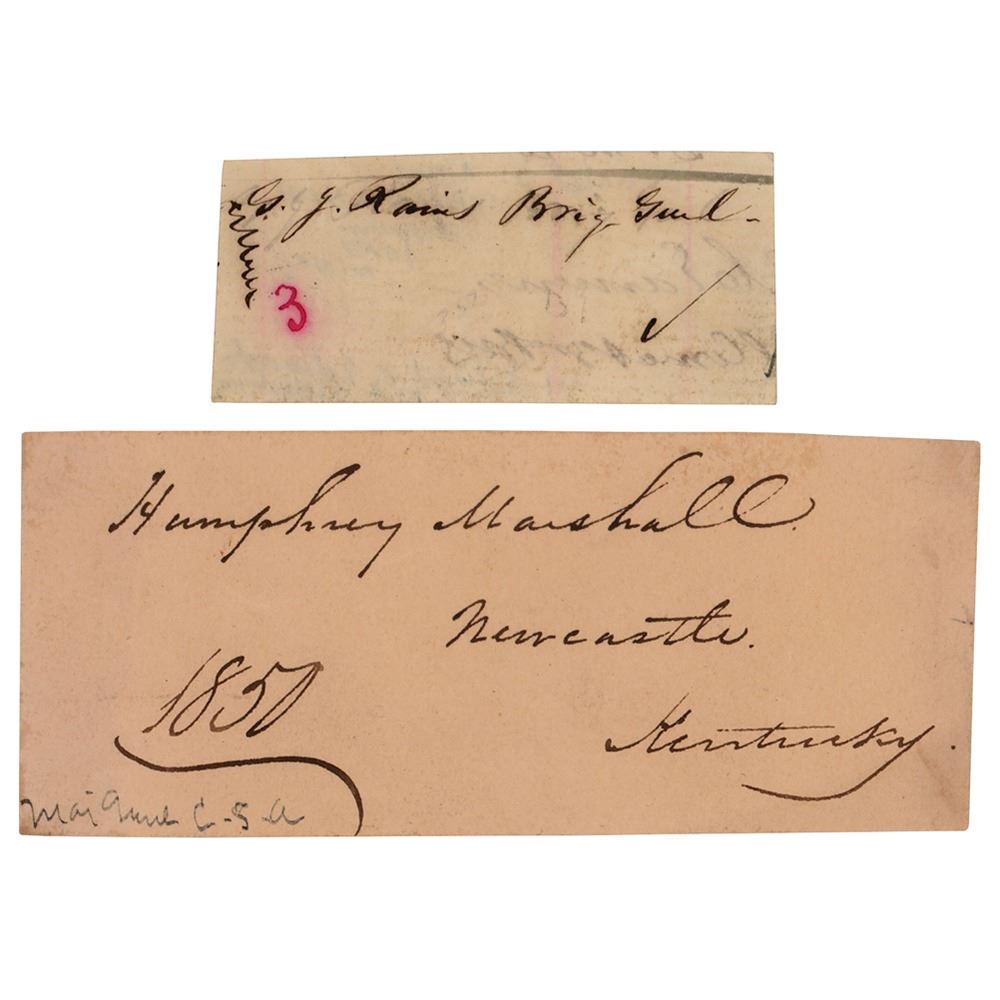 G. J. Rains Brig Genl-
3
Humphrey Marshall.
Newcastle.
Kentucky.
1850
Maj Genl C-S-A